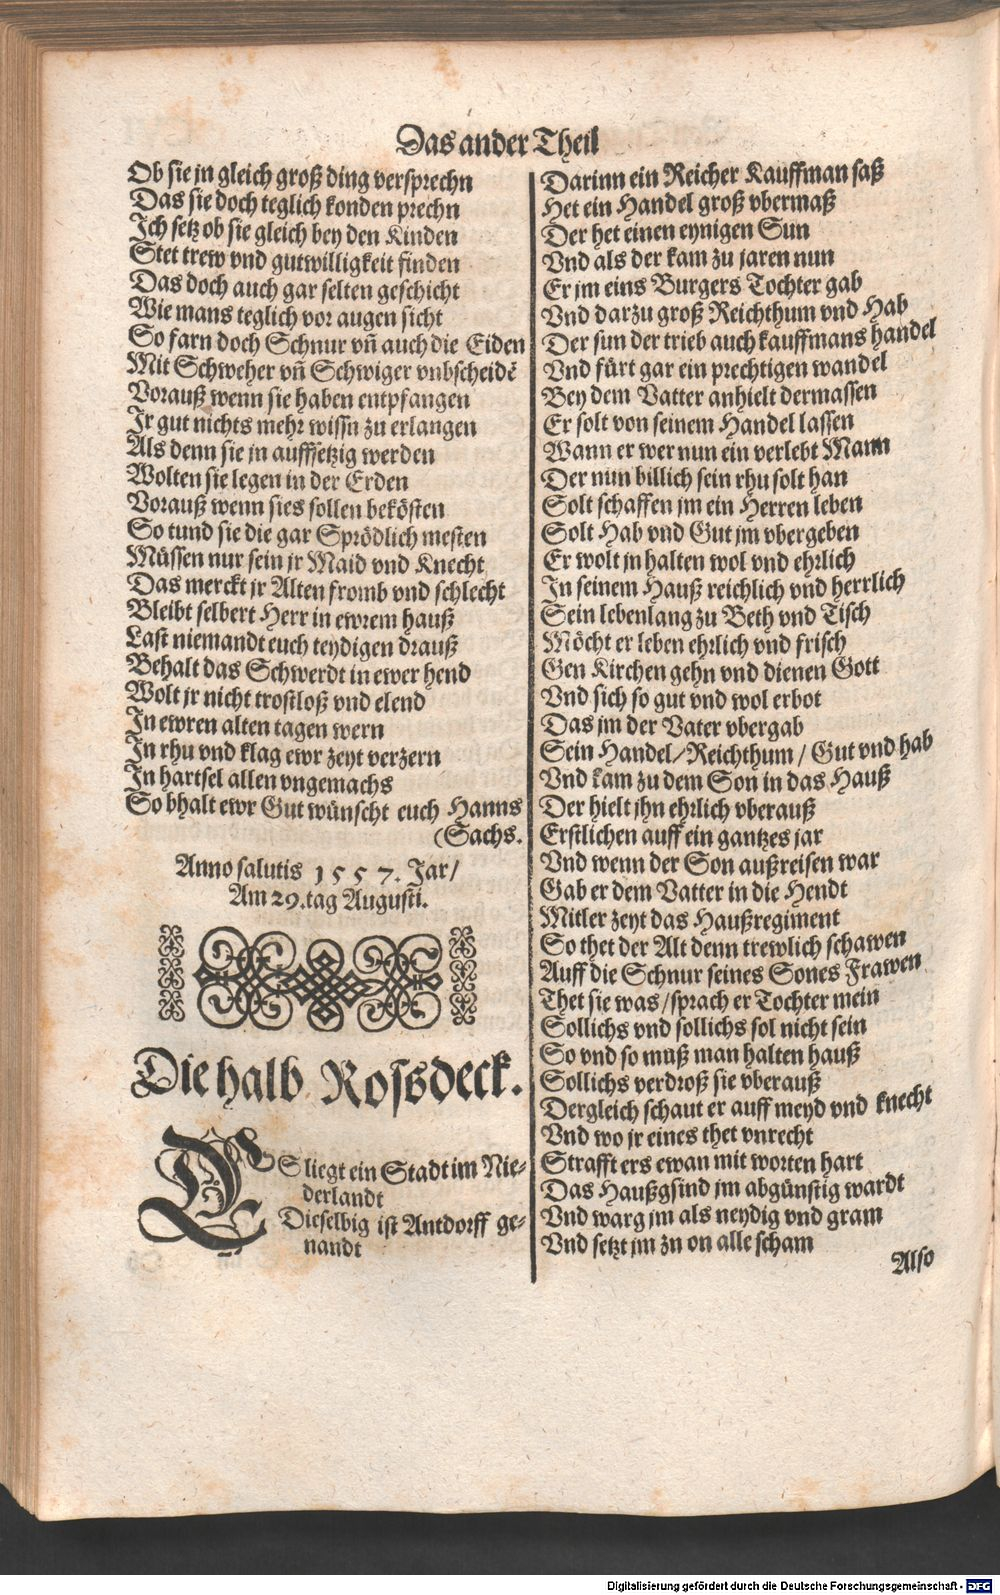 Das ander Theil
Ob sie jn gleich groß ding versprechn
Das sie doch teglich konden prechn
Ich setz ob sie gleich bey den Kinden
Stet trew vnd gutwilligkeit finden
Das doch auch gar selten geschicht
Wie mans teglich vor augen sicht
So farn doch Schnur vñ auch die Eiden
Mit Schweher vñ Schwiger vnbscheidẽ
Vorauß wenn sie haben entpfangen
Ir gut nichts mehr wissn zu erlangen
Als denn sie jn auffsetzig werden
Wolten sie legen in der Erden
Vorauß wenn sies sollen bekösten
So tund sie die gar Sprödlich mesten
Müssen nur sein jr Maid vnd Knecht
Das merckt jr Alten fromb vnd schlecht
Bleibt selbert Herr in ewrem hauß
Last niemandt euch teydigen drauß
Behalt das Schwerdt in ewer hend
Wolt jr nicht trostloß vnd elend
In ewren alten tagen wern
In rhu vnd klag ewr zeyt verzern
In hartsel allen vngemachs
So bhalt ewr Gut wünscht euch Hanns
(Sachs.
Anno salutis 1557. Jar/
Am 29. tag Augusti.
Die halb Rossdeck.
ES liegt ein Stadt im Nie-
derlandt
Dieselbig ist Antdorff ge-
nandt
Darinn ein Reicher Kauffman saß
Het ein Handel groß vbermaß
Der het einen eynigen Sun
Vnd als der kam zu jaren nun
Er jm eins Burgers Tochter gab
Vnd darzu groß Reichthum vnd Hab
Der sun der trieb auch kauffmans handel
Vnd fürt gar ein prechtigen wandel
Bey dem Vatter anhielt dermassen
Er solt von seinem Handel lassen
Wann er wer nun ein verlebt Mann
Der nun billich sein rhu solt han
Solt schaffen jm ein Herren leben
Solt Hab vnd Gut jm vbergeben
Er wolt jn halten wol vnd ehrlich
In seinem Hauß reichlich vnd herrlich
Sein lebenlang zu Beth vnd Tisch
Möcht er leben ehrlich vnd frisch
Gen Kirchen gehn vnd dienen Gott
Vnd sich so gut vnd wol erbot
Das jm der Vater vbergab
Sein Handel/Reichthum/ Gut vnd hab
Vnd kam zu dem Son in das Hauß
Der hielt jhn ehrlich vberauß
Erstlichen auff ein gantzes jar
Vnd wenn der Son außreisen war
Gab er dem Vatter in die Hendt
Mitler zeyt das Haußregiment
So thet der Alt denn trewlich schawen
Auff die Schnur seines Sones Frawen
Thet sie was/sprach er Tochter mein
Sollichs vnd sollichs sol nicht sein
So vnd so muß man halten hauß
Sollichs verdroß sie vberauß
Dergleich schaut er auff meyd vnd knecht
Vnd wo jr eines thet vnrecht
Strafft ers ewan mit worten hart
Das Haußgsind jm abgünstig wardt
Vnd warg jm als neydig vnd gram
Vnd setzt jm zu on alle scham
Also
Digitalisierung gefördert durch die Deutsche Forschungsgemeinschaft - DFG